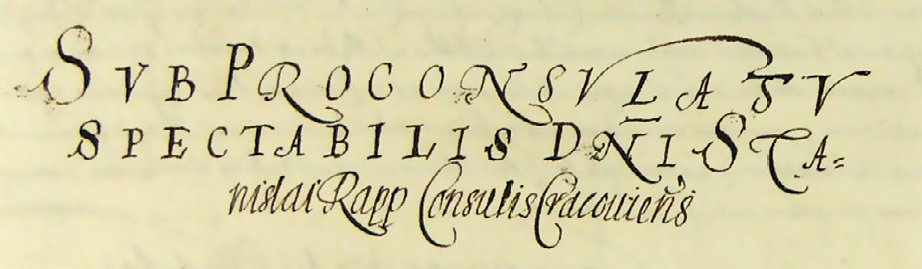 SVB PROCONSVLATV
SPECTABILIS DNI STA=
nislai Rapp Consulis Cracouiens